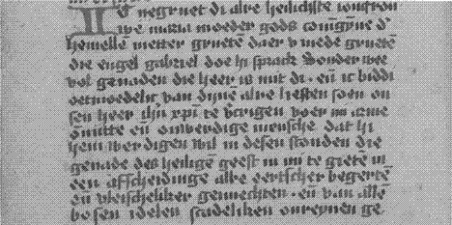 Ic gegruet di alre heilichste ioncfrou
we maria moeder gods coni͞ngy͞ne d'
hemellē metter gruetē daer v mede gruetē
die engel gabriel doe hi sprack Sonder wee
vol genaden die heer is mit di · eū ic biddi
oetmoedelic van dijnē alre liefsten soen on
sen heer ih͞u xp͞i te v'crigen voer mi arme
onnutte eū onwerdige mensche dat hi
hem werdigen wil in desen stonden die
genade des heiligē geest in mi te gietē in
een affscheidinge alre eertscher begertē
eū vleischeliker genuechten · eū van allē
bosen idelen scadeliken onreynen ge